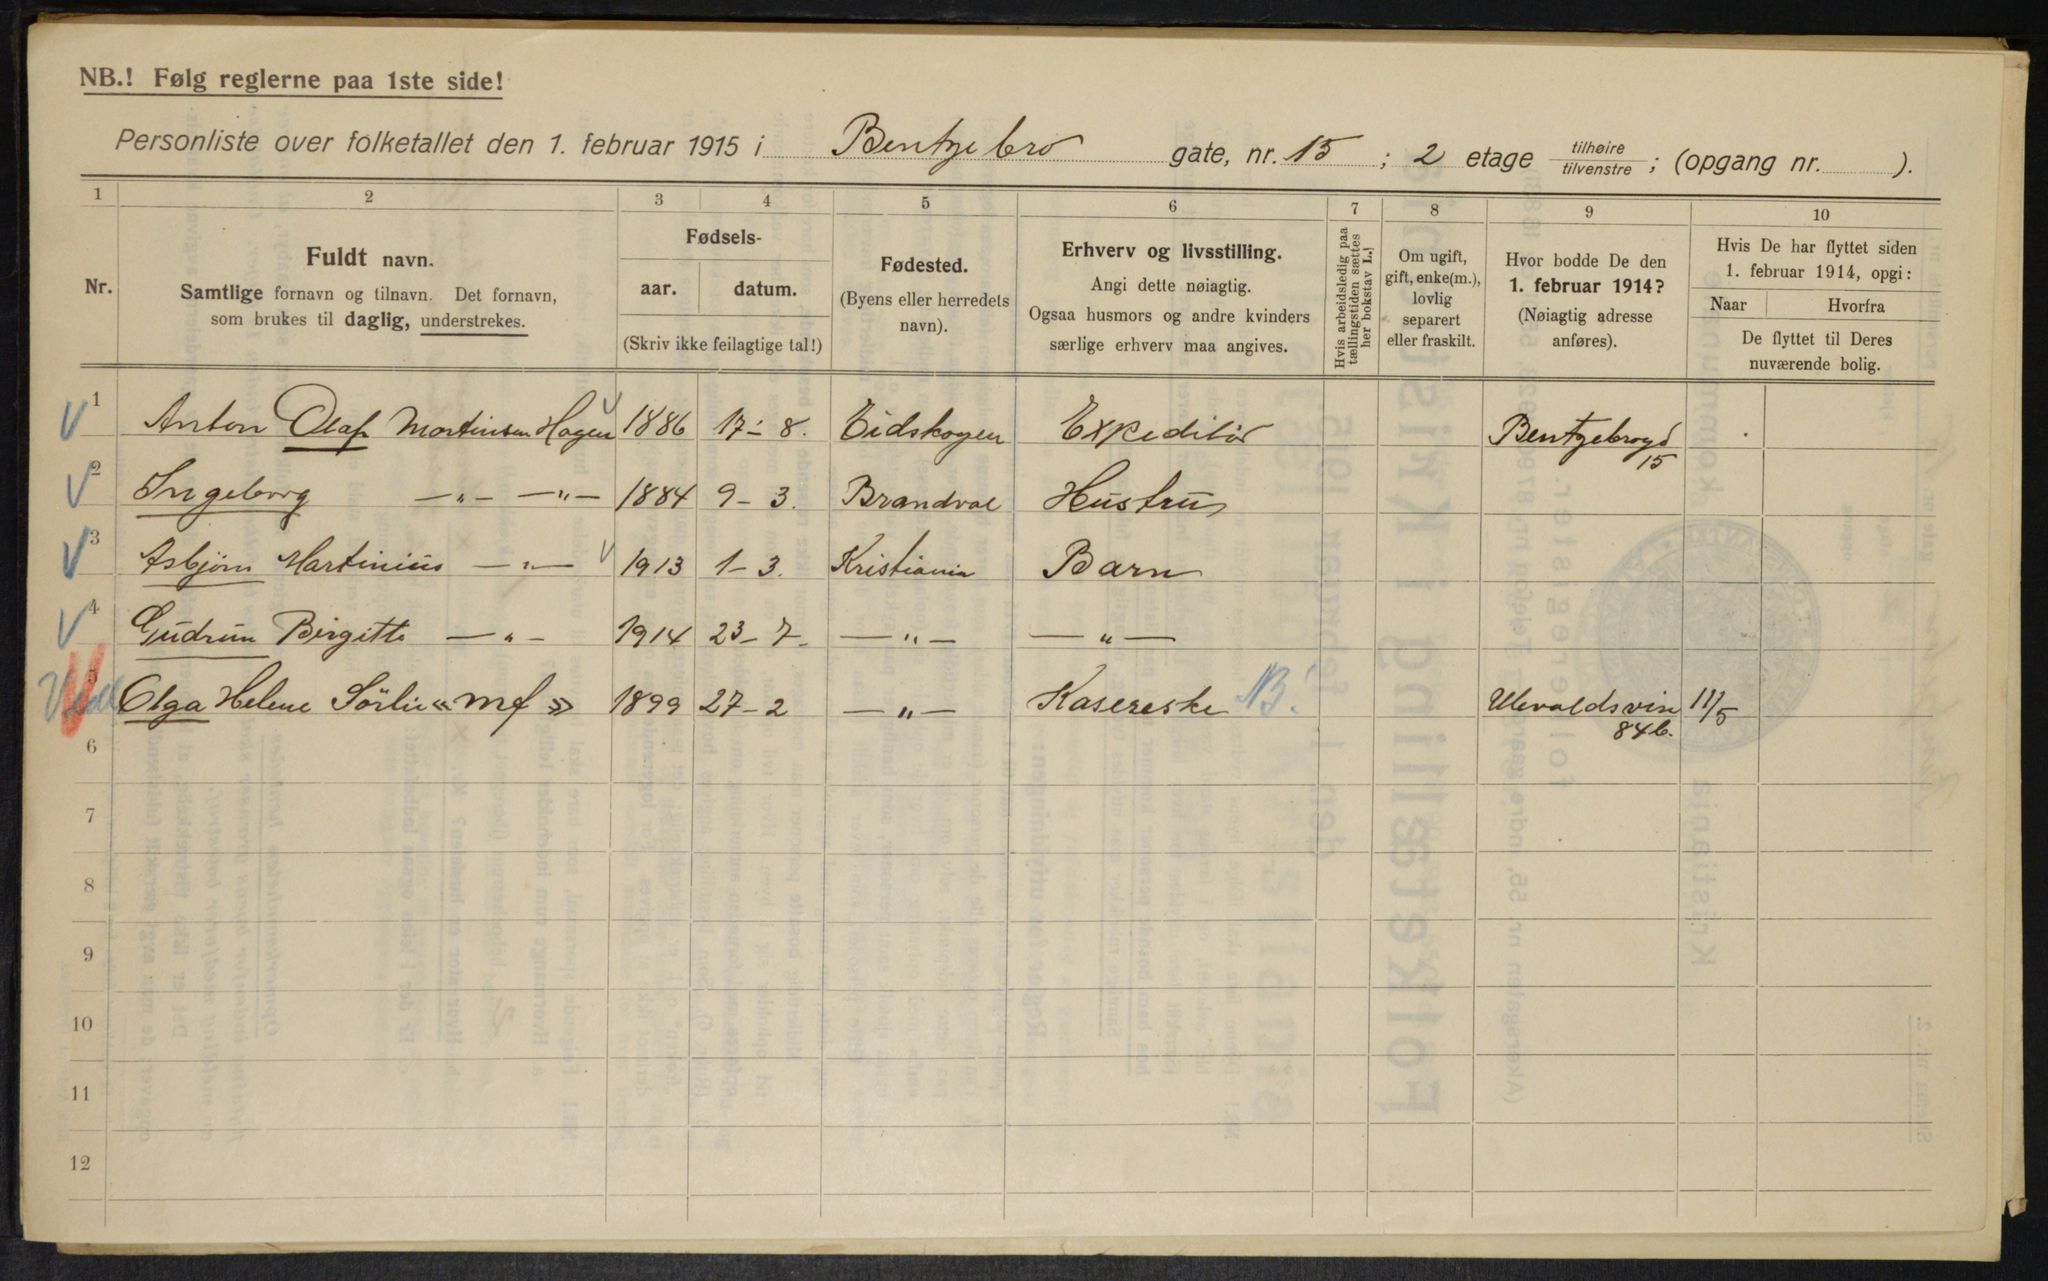 NB.! Følg reglerne paa 1ste side!
Personliste over folketallet den 1. februar 1915 i Bentzebro gate, nr. 15 ; 2 etage tilhøire / tilvenstre ; (opgang nr. ).
1 2 3 4 5 6 7 8 9 10
Nr.
Fuldt navn.
Samtlige fornavn og tilnavn. Det fornavn,
som brukes til daglig, understrekes.
Fødsels-
aar. datum.
(Skriv ikke feilagtige tal!)
Fødested.
(Byens eller herredets
navn).
Erhverv og livsstilling.
Angi dette nøiagtig.
Ogsaa husmors og andre kvinders
særlige erhverv maa angives.
Hvis arbeidsledig paa
tællingstiden sættes
her bokstav L.
Om ugift,
gift, enke(m.),
lovlig
separert
eller fraskilt.
Hvor bodde De den
1. februar 1914?
(Nøiagtig adresse
anføres).
Hvis De har flyttet siden
1. februar 1914, opgi:
Naar Hvorfra
De flyttet til Deres
nuværende bolig.
1 Anton Olaf Martinsen Hagen 1886 17-8. Eidskogen Expeditør Bentzebrogd 15
2 Ingeborg —„— —„— 1884 9-3. Brandval Hustru
3 Asbjørn Martinius —„— 1913 1-3. Kristiania Barn
4 Gudrun Birgitte —„— 1914 23-7- —„— —„—
5 Olga Helene Sörlie «mf» 1899 27-2 —„— Kasereske B! Ulevaldsvin 84b. 11/5
6
7
8
9
10
11
12